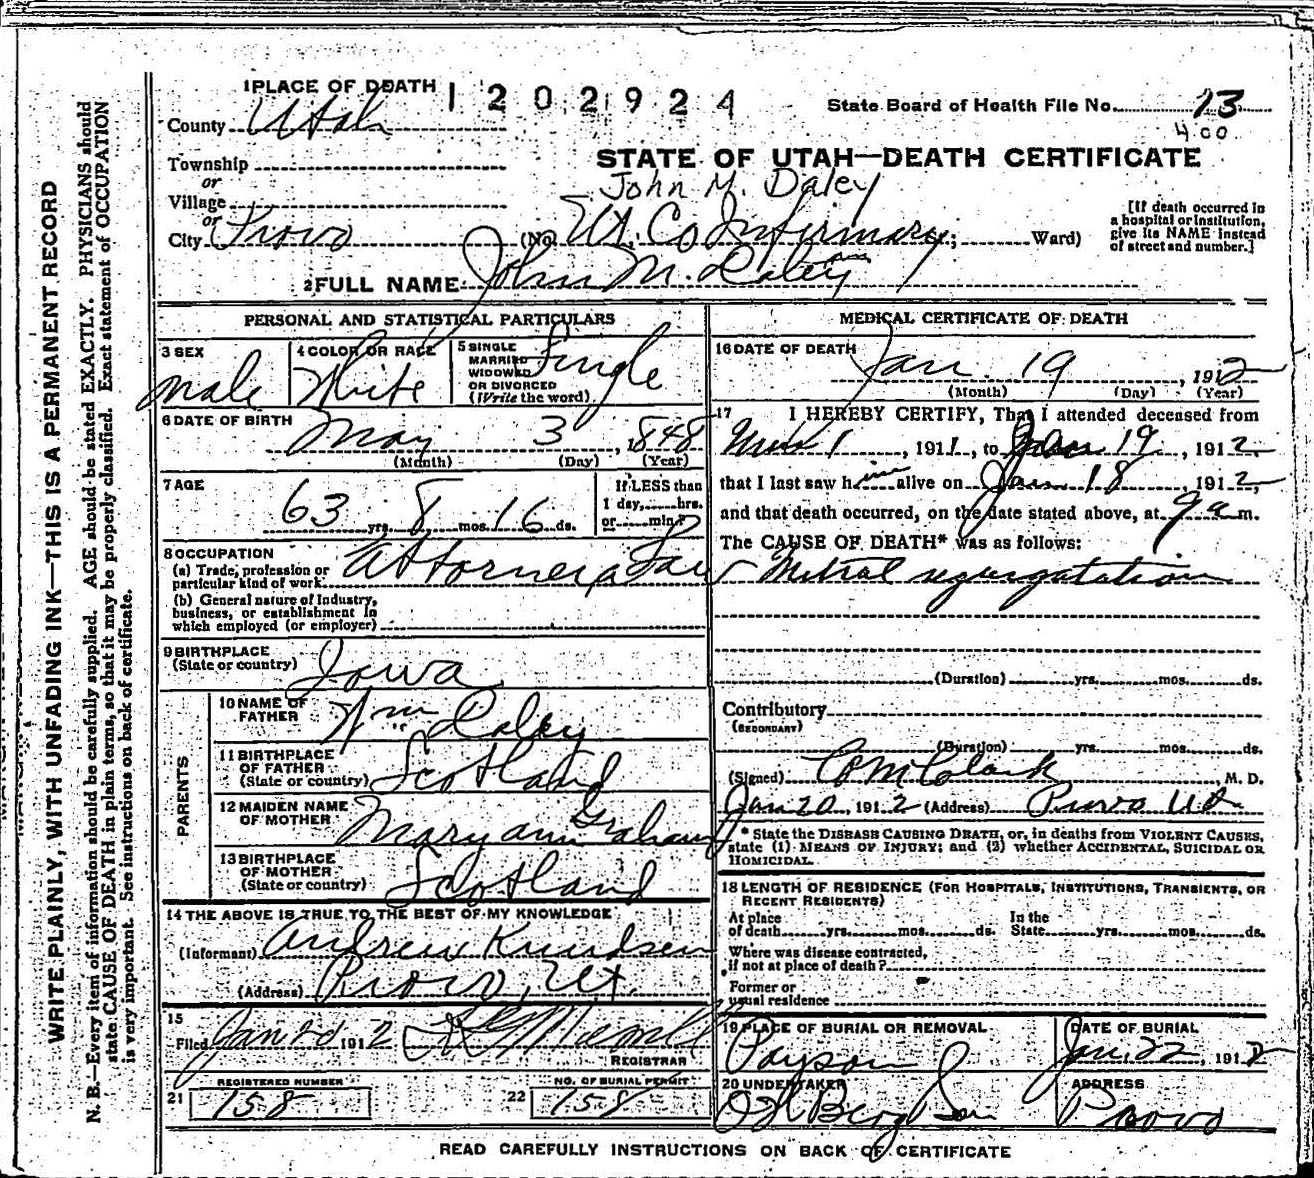 1 PLACE OF DEATH 1202924 State Board of Health File No. 13
400
County Utah
STATE OF UTAH—DEATH CERTIFICATE
Township
or
John M. Daley
Village
or
City Provo (No. Ut. Co Infirmary; Ward)
[If death occurred in
a hospital or institution,
give its NAME instead
of street and number.]
2 FULL NAME John M. Daley
PERSONAL AND STATISTICAL PARTICULARS
3 SEX male
4 COLOR OR RACE White
5 SINGLE
MARRIED
WIDOWED
OR DIVORCED
(Write the word) Single
6 DATE OF BIRTH
May 3, 1848
(Month) (Day) (Year)
7 AGE
63 yrs. 8 mos. 16 ds.
If LESS than
1 day, hrs.
or min?
8 OCCUPATION
(a) Trade, profession or
particular kind of work Attorney a Law
(b) General nature of Industry,
business, or establishment in
which employed (or employer)
9 BIRTHPLACE
(State or country) Iowa
PARENTS
10 NAME OF
FATHER Wm Daley
11 BIRTHPLACE
OF FATHER
(State or country) Scotland
12 MAIDEN NAME
OF MOTHER Mary ann Graham
13 BIRTHPLACE
OF MOTHER
(State or country) Scotland
14 THE ABOVE IS TRUE TO THE BEST OF MY KNOWLEDGE
(Informant) Andrew Knudsen
(Address) Provo, Ut.
15
Filed Jan 20 1912
REGISTRAR
REGISTERED NUMBER
21 158
NO. OF BURIAL PERMIT
22 158
MEDICAL CERTIFICATE OF DEATH
16 DATE OF DEATH
Jan. 19, 1912
(Month) (Day) (Year)
17 I HEREBY CERTIFY, That I attended deceased from
1, 1911, to Jan 19, 1912,
that I last saw him alive on Jan 18, 1912,
and that death occurred, on the date stated above, at 9 a m.
The CAUSE OF DEATH* was as follows:
Mitral regurgatation
(Duration) yrs. mos. ds.
Contributory
(SECONDARY)
(Duration) yrs. mos. ds.
(Signed) Clark, M. D.
Jan 20, 1912 (Address) Provo Ut
* State the DISEASE CAUSING DEATH, or, in deaths from VIOLENT CAUSES,
state (1) MEANS OF INJURY; and (2) whether ACCIDENTAL, SUICIDAL OR
HOMICIDAL.
18 LENGTH OF RESIDENCE (FOR HOSPITALS, INSTITUTIONS, TRANSIENTS, OR
RECENT RESIDENTS)
At place
of death yrs. mos. ds.
In the
State yrs. mos. ds.
Where was disease contracted,
if not at place of death?
Former or
usual residence
19 PLACE OF BURIAL OR REMOVAL
Payson
DATE OF BURIAL
Jan. 22, 1912
20 UNDERTAKER
ADDRESS
Provo
READ CAREFULLY INSTRUCTIONS ON BACK OF CERTIFICATE
WRITE PLAINLY, WITH UNFADING INK—THIS IS A PERMANENT RECORD
N. B.—Every item of information should be carefully supplied. AGE should be stated EXACTLY. PHYSICIANS should
state CAUSE OF DEATH in plain terms, so that it may be properly classified. Exact statement of OCCUPATION
is very important. See instructions on back of certificate.